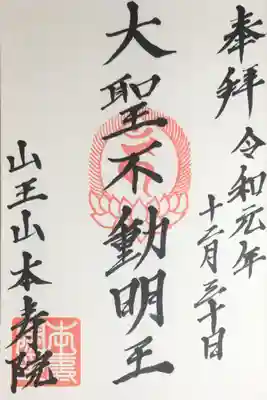 奉拜 令和元年
十二月三十日
大聖不動明王
山王山本寿院